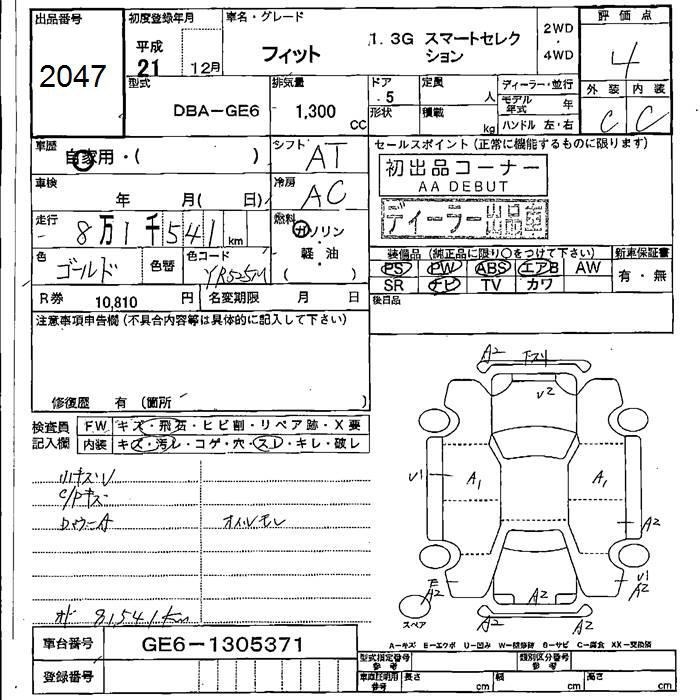 出品番号
2047
初度登録年月
平成
21 12月
車名・グレード
フィット
1.3G スマートセレク
ション
2WD
・
4WD
評価点
4
外装 内装
C C
型式
DBA-GE6
排気量
1,300 CC
ドア
・5
形状
定員 人
積載 kg
ディーラー・並行
モデル年式 年
ハンドル 左・右
車歴
自家用・( )
シフト
AT
車検
年 月( 日)
冷房
AC
走行
8万1千541 km
燃料
ガソリン
・
軽・油
( )
色
ゴールド
色替
色コード
YR525M
R券 10,810 円
名変期限 月 日
セールスポイント (正常に機能するものに限ります)
初出品コーナー
AA DEBUT
ディーラー出品車
装備品 (純正品に限り○をつけて下さい)
PS PW ABS エアB AW
SR ナビ TV カワ
新車保証書
有・無
後日品
注意事項申告欄(不具合内容等は具体的に記入して下さい)
修復歴 有 (箇所 )
検査員
記入欄
FW キズ・飛石・ヒビ割・リペア跡・X要
内装 キズ・汚レ・コゲ・穴・スレ・キレ・破レ
小キズU
C/Pキズ
オイルモレ
オド 81541km
A2 下スリ
U2
U1 A1 A1
A2
A2 A2
U1
A2
スペア
A2 A2
車台番号 GE6-1305371
登録番号
A-キズ E-エクボ U-凹み W-補修跡 S-サビ C-腐食 XX-交換済
型式指定番号
参考
類別区分番号
参考
車庫証明用
参考
長さ cm 幅 cm 高さ cm